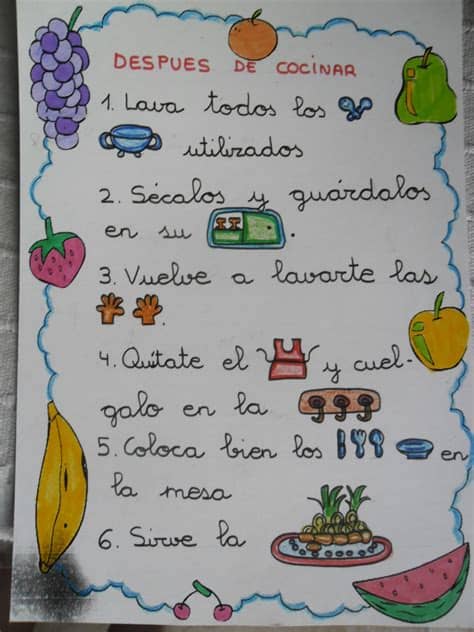 DESPUES DE COCINAR
1. Lava todos los
utilizados
2. Sécalos y guárdalos
en su .
3. Vuelve a lavarte las
.
4. Quítate el y cuel-
galo en la
5. Coloca bien los en
la mesa
6. Sirve la